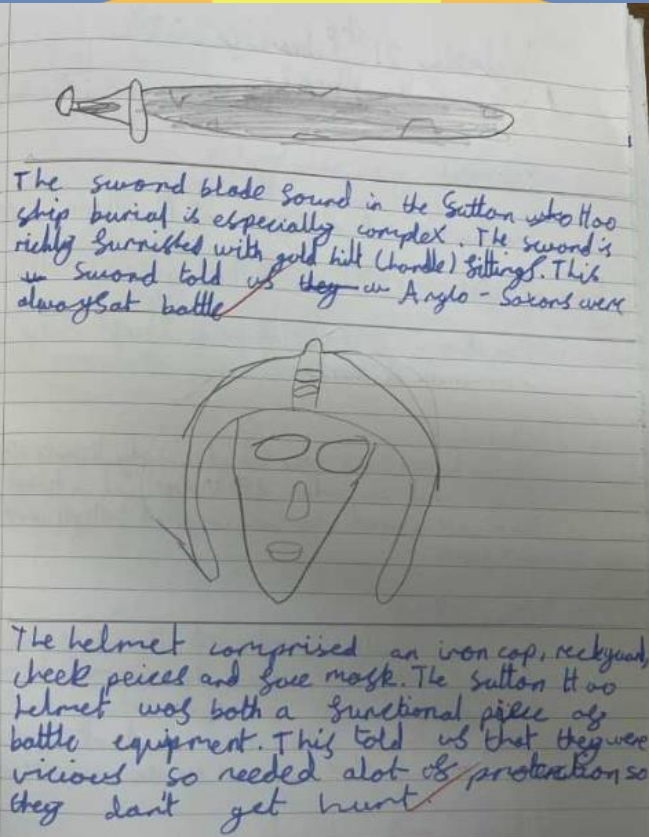 The sword blade found in the Sutton Hoo
ship burial is especially complex. The sword is
richly furnished with gold hilt (handle) fittings. This
sword told us they Anglo-Saxons were
always at battle
The helmet comprised an iron cap, neckguard,
cheek peices and face mask. The Sutton Hoo
helmet was both a functional piece of
battle equipment. This told us that they were
vicious so needed alot of protection so
they don't get hurt.